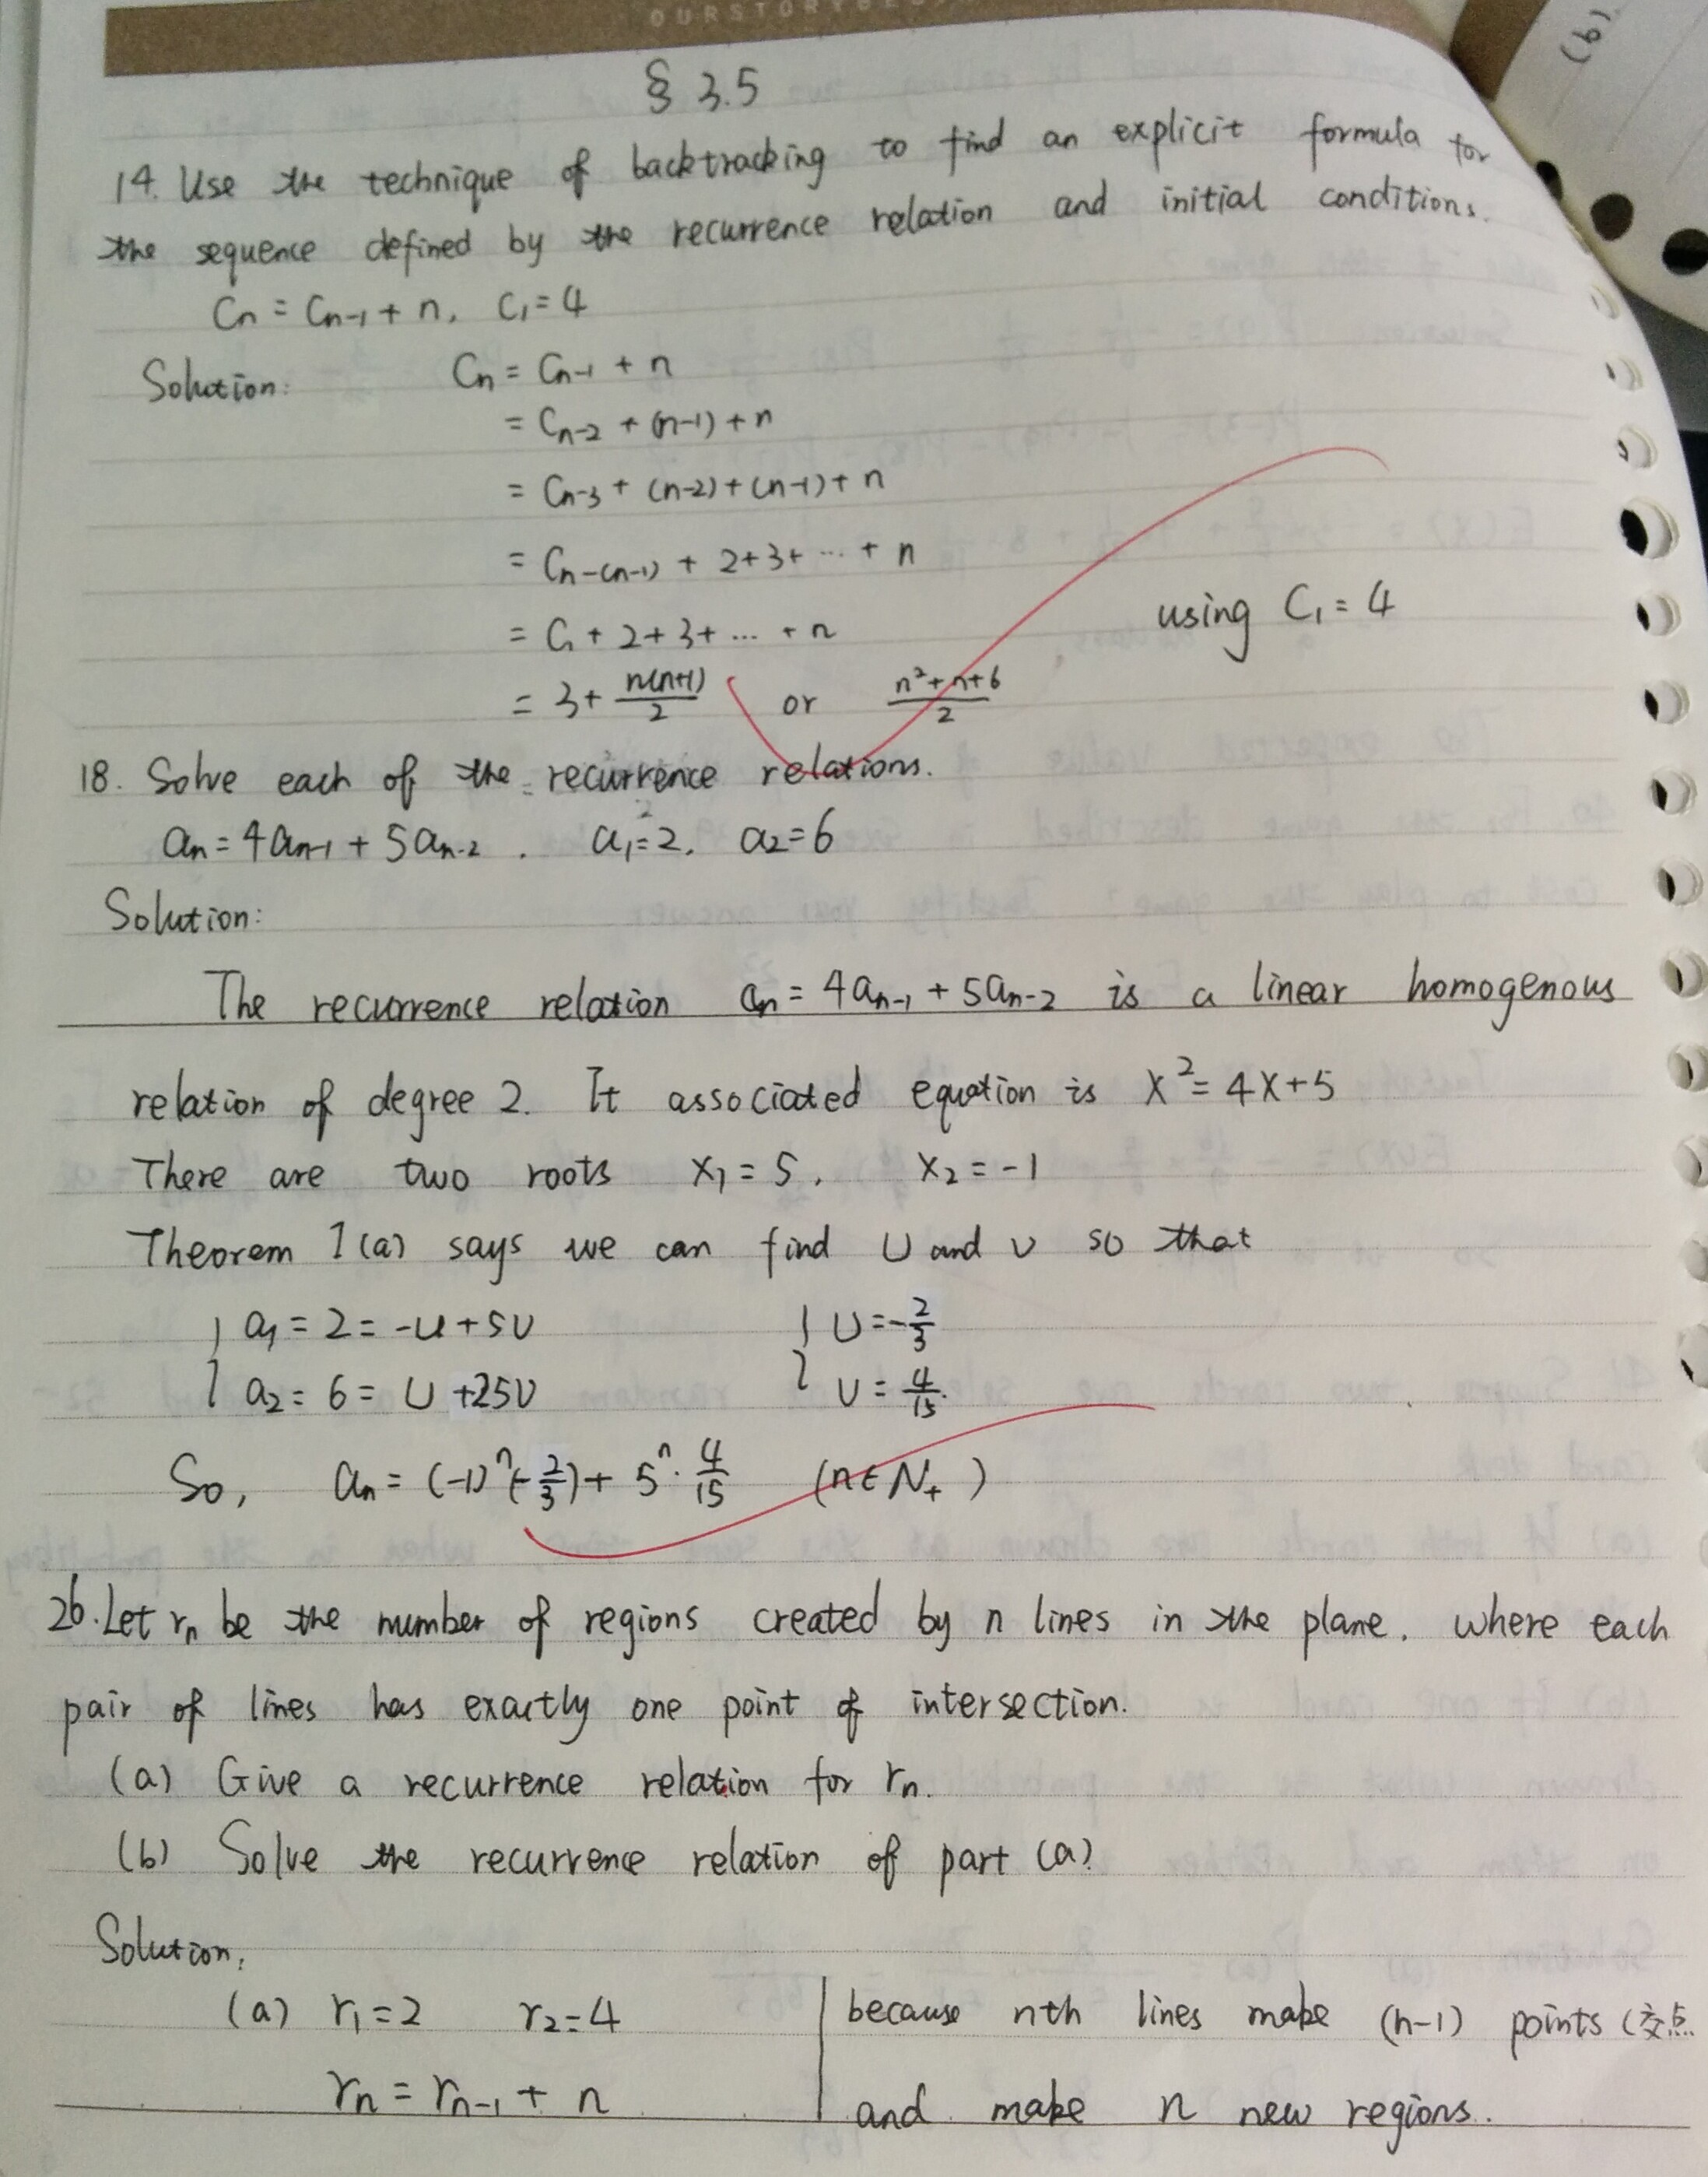 OURSTORY
(b)
§ 3.5
14. Use the technique of backtracking to find an explicit formula for
the sequence defined by the recurrence relation and initial conditions.
Cn = Cn-1 + n, C1 = 4
Solution: Cn = Cn-1 + n
= Cn-2 + (n-1) + n
= Cn-3 + (n-2) + (n-1) + n
= Cn-(n-1) + 2+3+ ... + n
= C1 + 2+3+ ... + n using C1 = 4
= 3 + n(n+1)/2 or n²+n+6/2
18. Solve each of the recurrence relations.
an = 4an-1 + 5an-2 . a1=2, a2=6
Solution:
The recurrence relation an = 4an-1 + 5an-2 is a linear homogenous
relation of degree 2. It associated equation is x² = 4x+5
There are two roots x1 = 5, x2 = -1
Theorem 1(a) says we can find u and v so that
{ a1 = 2 = -u + 5v { u = -2/3
a2 = 6 = u + 25v v = 4/15.
So, an = (-1)ⁿ(-2/3) + 5ⁿ · 4/15 (n∈N+)
26. Let rn be the number of regions created by n lines in the plane. where each
pair of lines has exactly one point of intersection.
(a) Give a recurrence relation for rn.
(b) Solve the recurrence relation of part (a)
Solution:
(a) r1=2 r2=4 because nth lines make (n-1) points (交点
rn = rn-1 + n and make n new regions.